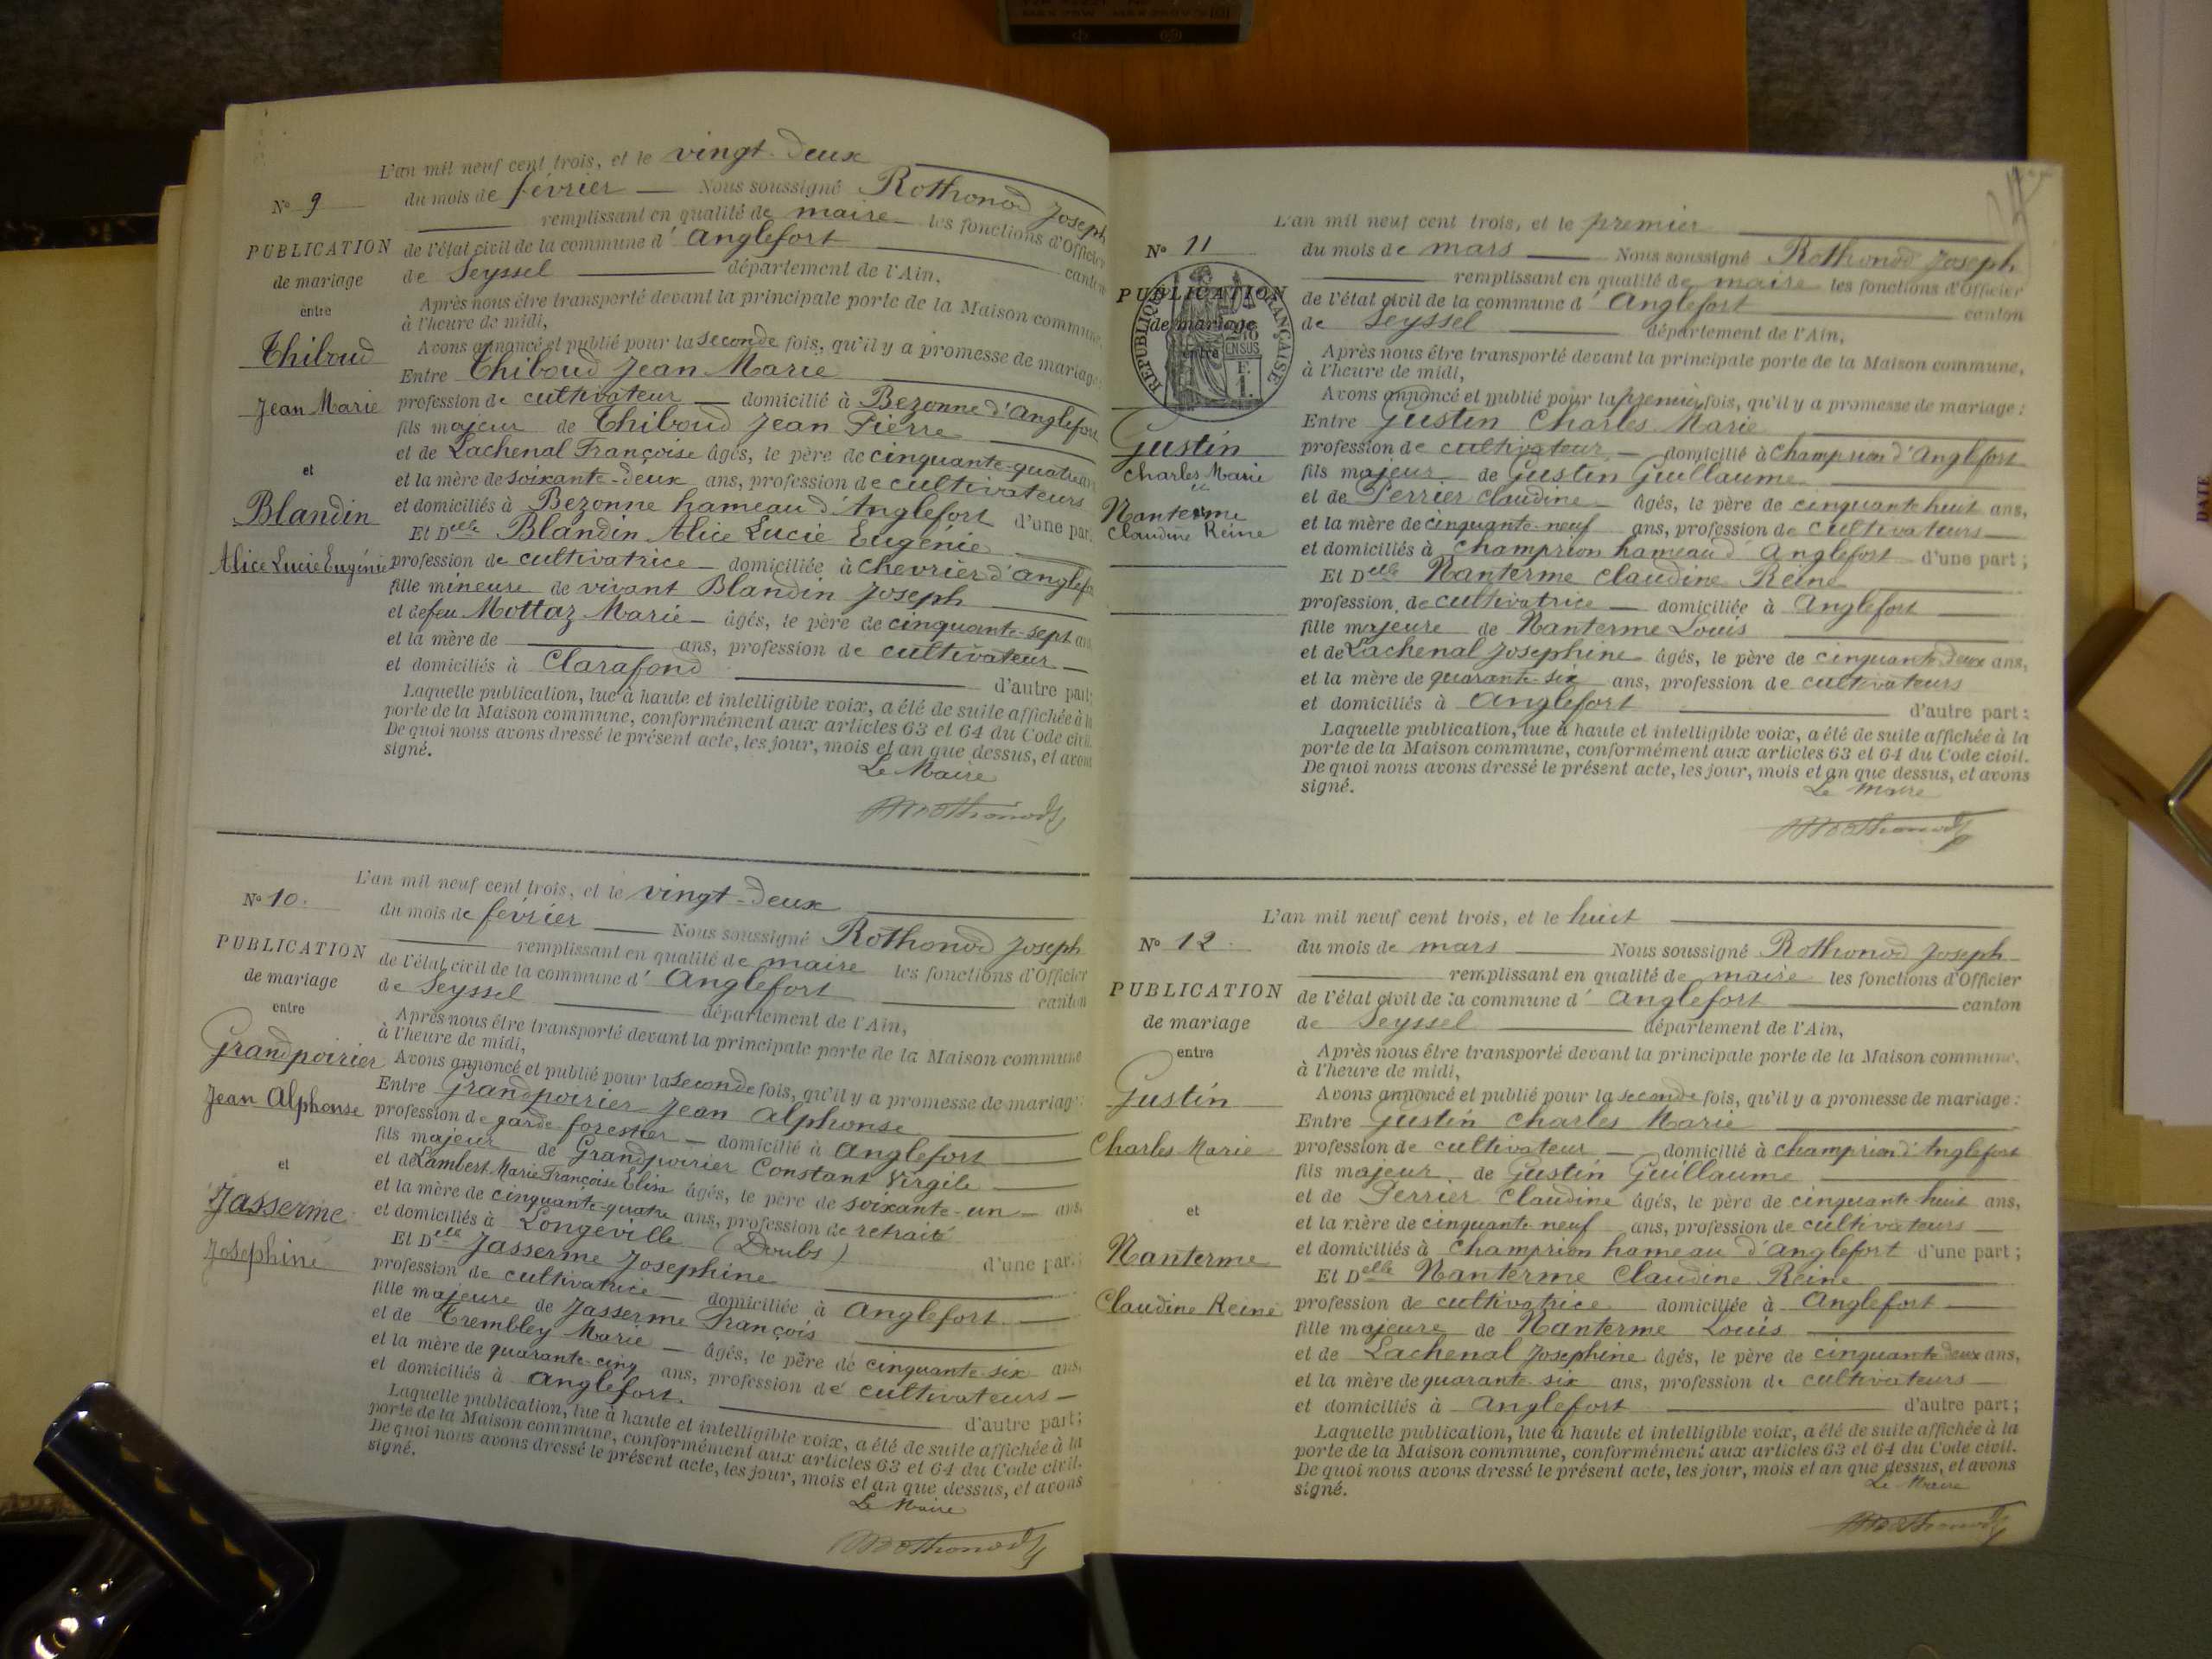 L'an mil neuf cent trois, et le vingt-deux
N° 9
du mois de février Nous soussigné Rothonod Joseph
remplissant en qualité de maire les fonctions d'Officier
PUBLICATION
de mariage
entre
Thiboud
Jean Marie
et
Blandin
Alice Lucie Eugénie
de l'état civil de la commune d' Anglefort canton
de Seyssel département de l'Ain,
Après nous être transporté devant la principale porte de la Maison commune,
à l'heure de midi,
Avons annoncé et publié pour la seconde fois, qu'il y a promesse de mariage:
Entre Thiboud Jean Marie
profession de cultivateur domicilié à Bezonne d'Anglefort
fils majeur de Thiboud Jean Pierre
et de Lachenal Françoise âgés, le père de cinquante-quatre ans
et la mère de soixante-deux ans, profession de cultivateurs
et domiciliés à Bezonne hameau d'Anglefort d'une part
Et Delle Blandin Alice Lucie Eugénie
profession de cultivatrice domiciliée à Chevrier d'Anglefort
fille mineure de vivant Blandin Joseph
et de feu Mottaz Marie âgés, le père de cinquante-sept ans
et la mère de ans, profession de cultivateur
et domiciliés à Clarafond d'autre part;
Laquelle publication, lue à haute et intelligible voix, a été de suite affichée à la
porte de la Maison commune, conformément aux articles 63 et 64 du Code civil.
De quoi nous avons dressé le présent acte, les jour, mois et an que dessus, et avons
signé.
Le Maire
L'an mil neuf cent trois, et le vingt-deux
N° 10.
du mois de février Nous soussigné Rothonod Joseph
remplissant en qualité de maire les fonctions d'Officier
PUBLICATION
de mariage
entre
Grandpoirier
Jean Alphonse
et
Jasserme
Josephine
de l'état civil de la commune d' Anglefort canton
de Seyssel département de l'Ain,
Après nous être transporté devant la principale porte de la Maison commune
à l'heure de midi,
Avons annoncé et publié pour la seconde fois, qu'il y a promesse de mariage:
Entre Grandpoirier Jean Alphonse
profession de garde forestier domicilié à Anglefort
fils majeur de Grandpoirier Constant Virgile
et de Lambert Marie Françoise Elisa âgés, le père de soixante-un ans,
et la mère de cinquante-quatre ans, profession de retraité
et domiciliés à Longeville (Doubs) d'une part;
Et Delle Jasserme Josephine
profession de cultivatrice domiciliée à Anglefort
fille majeure de Jasserme François
et de Trembley Marie âgés, le père de cinquante-six ans,
et la mère de quarante-cinq ans, profession de cultivateurs
et domiciliés à Anglefort. d'autre part;
Laquelle publication, lue à haute et intelligible voix, a été de suite affichée à la
porte de la Maison commune, conformément aux articles 63 et 64 du Code civil.
De quoi nous avons dressé le présent acte, les jour, mois et an que dessus, et avons
signé.
Le Maire
L'an mil neuf cent trois, et le premier
N° 11
du mois de mars Nous soussigné Rothonod Joseph
remplissant en qualité de maire les fonctions d'Officier
PUBLICATION
de mariage
entre
RÉPUBLIQUE FRANÇAISE
Gustin
Charles Marie
et
Nanterme
Claudine Reine
de l'état civil de la commune d' Anglefort canton
de Seyssel département de l'Ain,
Après nous être transporté devant la principale porte de la Maison commune,
à l'heure de midi,
Avons annoncé et publié pour la première fois, qu'il y a promesse de mariage:
Entre Gustin Charles Marie
profession de cultivateur domicilié à Champrion d'Anglefort
fils majeur de Gustin Guillaume
et de Perrier Claudine âgés, le père de cinquante huit ans,
et la mère de cinquante-neuf ans, profession de cultivateurs
et domiciliés à Champrion hameau d'Anglefort d'une part;
Et Delle Nanterme Claudine Reine
profession de cultivatrice domiciliée à Anglefort
fille majeure de Nanterme Louis
et de Lachenal Josephine âgés, le père de cinquante deux ans,
et la mère de quarante-six ans, profession de cultivateurs
et domiciliés à Anglefort d'autre part:
Laquelle publication, lue à haute et intelligible voix, a été de suite affichée à la
porte de la Maison commune, conformément aux articles 63 et 64 du Code civil.
De quoi nous avons dressé le présent acte, les jour, mois et an que dessus, et avons
signé.
Le Maire
L'an mil neuf cent trois, et le huit
N° 12
du mois de mars Nous soussigné Rothonod Joseph
remplissant en qualité de maire les fonctions d'Officier
PUBLICATION
de mariage
entre
Gustin
Charles Marie
et
Nanterme
Claudine Reine
de l'état civil de la commune d' Anglefort canton
de Seyssel département de l'Ain,
Après nous être transporté devant la principale porte de la Maison commune,
à l'heure de midi,
Avons annoncé et publié pour la seconde fois, qu'il y a promesse de mariage:
Entre Gustin Charles Marie
profession de cultivateur domicilié à Champrion d'Anglefort
fils majeur de Gustin Guillaume
et de Perrier Claudine âgés, le père de cinquante-huit ans,
et la mère de cinquante-neuf ans, profession de cultivateurs
et domiciliés à Champrion hameau d'Anglefort d'une part;
Et Delle Nanterme Claudine Reine
profession de cultivatrice domiciliée à Anglefort
fille majeure de Nanterme Louis
et de Lachenal Josephine âgés, le père de cinquante deux ans,
et la mère de quarante-six ans, profession de cultivateurs
et domiciliés à Anglefort d'autre part;
Laquelle publication, lue à haute et intelligible voix, a été de suite affichée à la
porte de la Maison commune, conformément aux articles 63 et 64 du Code civil.
De quoi nous avons dressé le présent acte, les jour, mois et an que dessus, et avons
signé.
Le Maire
DATE